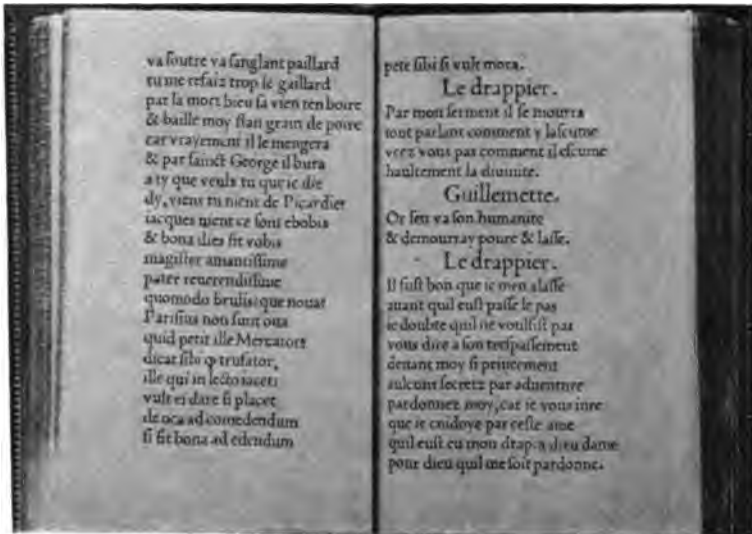 va foutre va sanglant paillard
tu me refaiz trop le gaillard
par la mort bieu sa vien ten boire
& baille moy stan grain de poire
car vrayement il le mengera
& par sainct George il bura
a ty que veulx tu que ie die
dy, viens tu nient de Picardie
iacques nient ce sont ebobis
& bona dies sit vobis
magister amantissime
pater reuerendissime
quomodo brulis: que noua
Parisius non sunt oua
quid petit ille Mercator
dicat sibi ꝙ trufator,
ille qui in lecto iacet
vult ei dare si placet
de oca ad comedendum
si sit bona ad edendum
pete sibi si vult mora.
Le drappier.
Par mon serment il se mourra
tout parlant comment y lascume
veez vous pas comment il escume
haultement la diuinite.
Guillemette.
Or sen va son humanite
& demourray poure & lasse.
Le drappier.
Il fust bon que ie men alasse
auant quil eust passe le pas
ie doubte quil ne voulsist pas
vous dire a son trespassement
deuant moy si priueement
aulcuns secretz par aduenture
pardonnez moy, car ie vous iure
que ie cuidoye par ceste ame
quil eust eu mon drap. a dieu dame
pour dieu quil me soit pardonne.